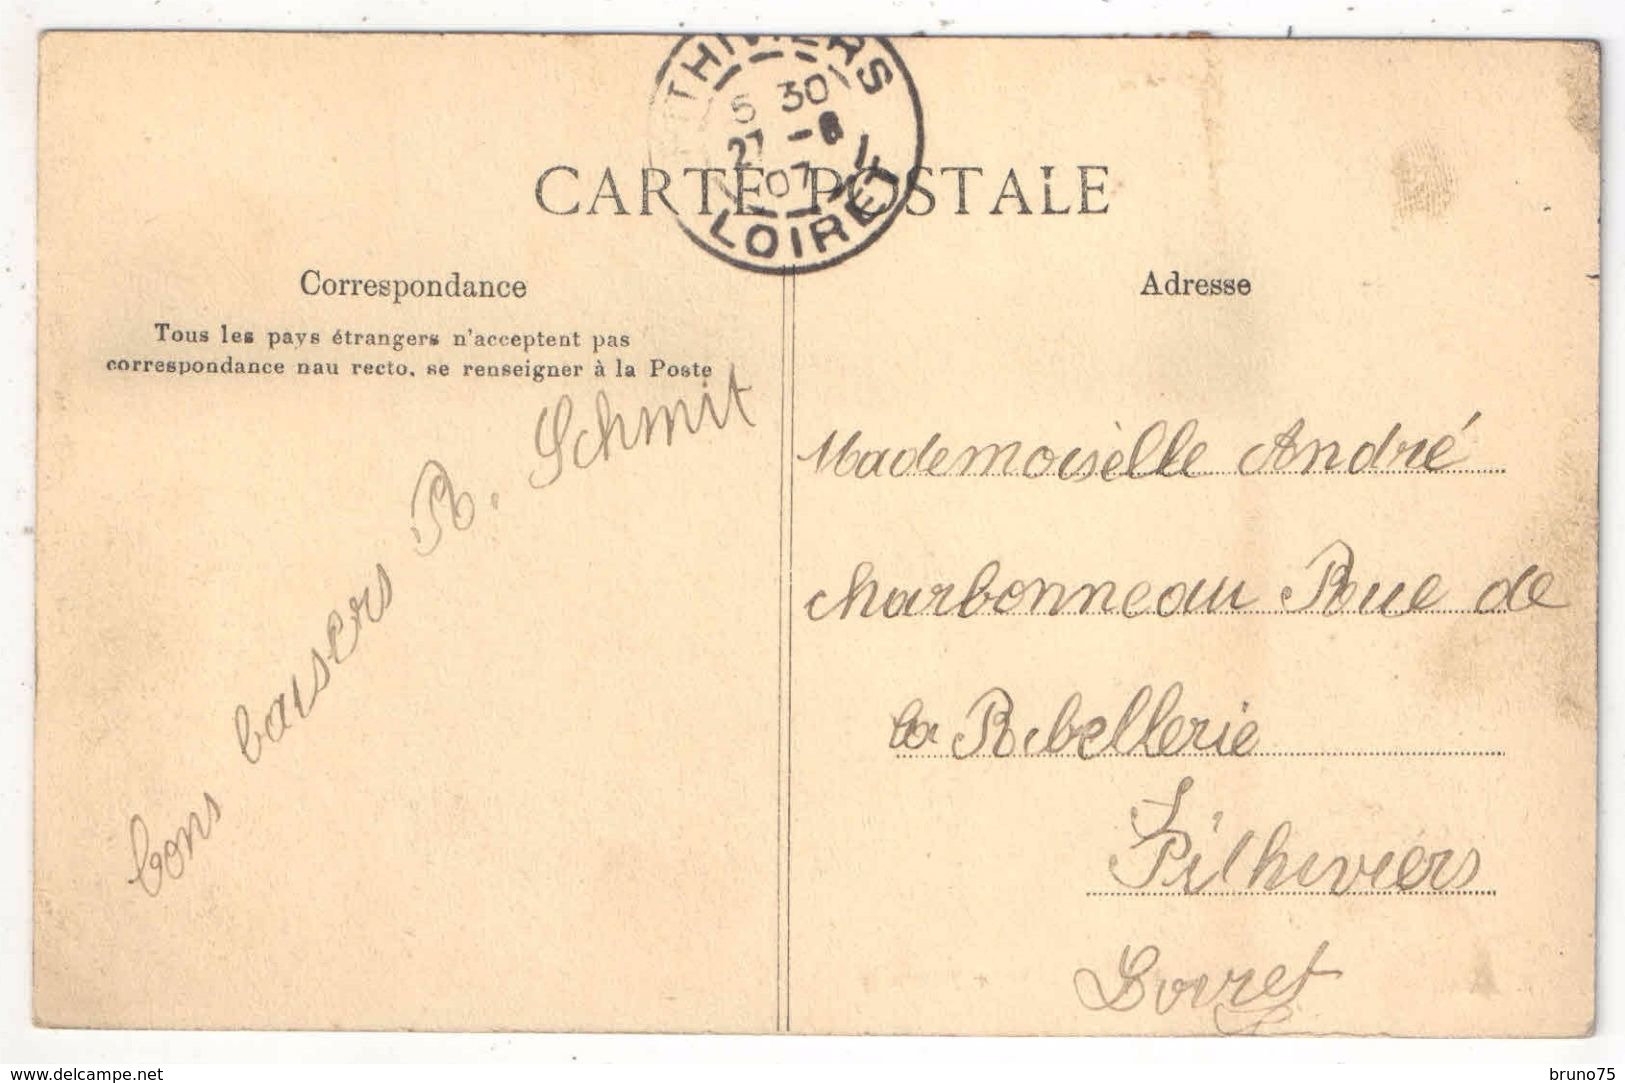 THIVIERS
6 30
27 -6
07
LOIRET
CARTE POSTALE
Correspondance
Tous les pays étrangers n'acceptent pas
correspondance nau recto, se renseigner à la Poste
bons baisers R. Schmit
Adresse
Mademoiselle André
Charbonneau Rue de
la Ribellerie
Pithiviers
Loiret
www.delcampe.net
bruno75